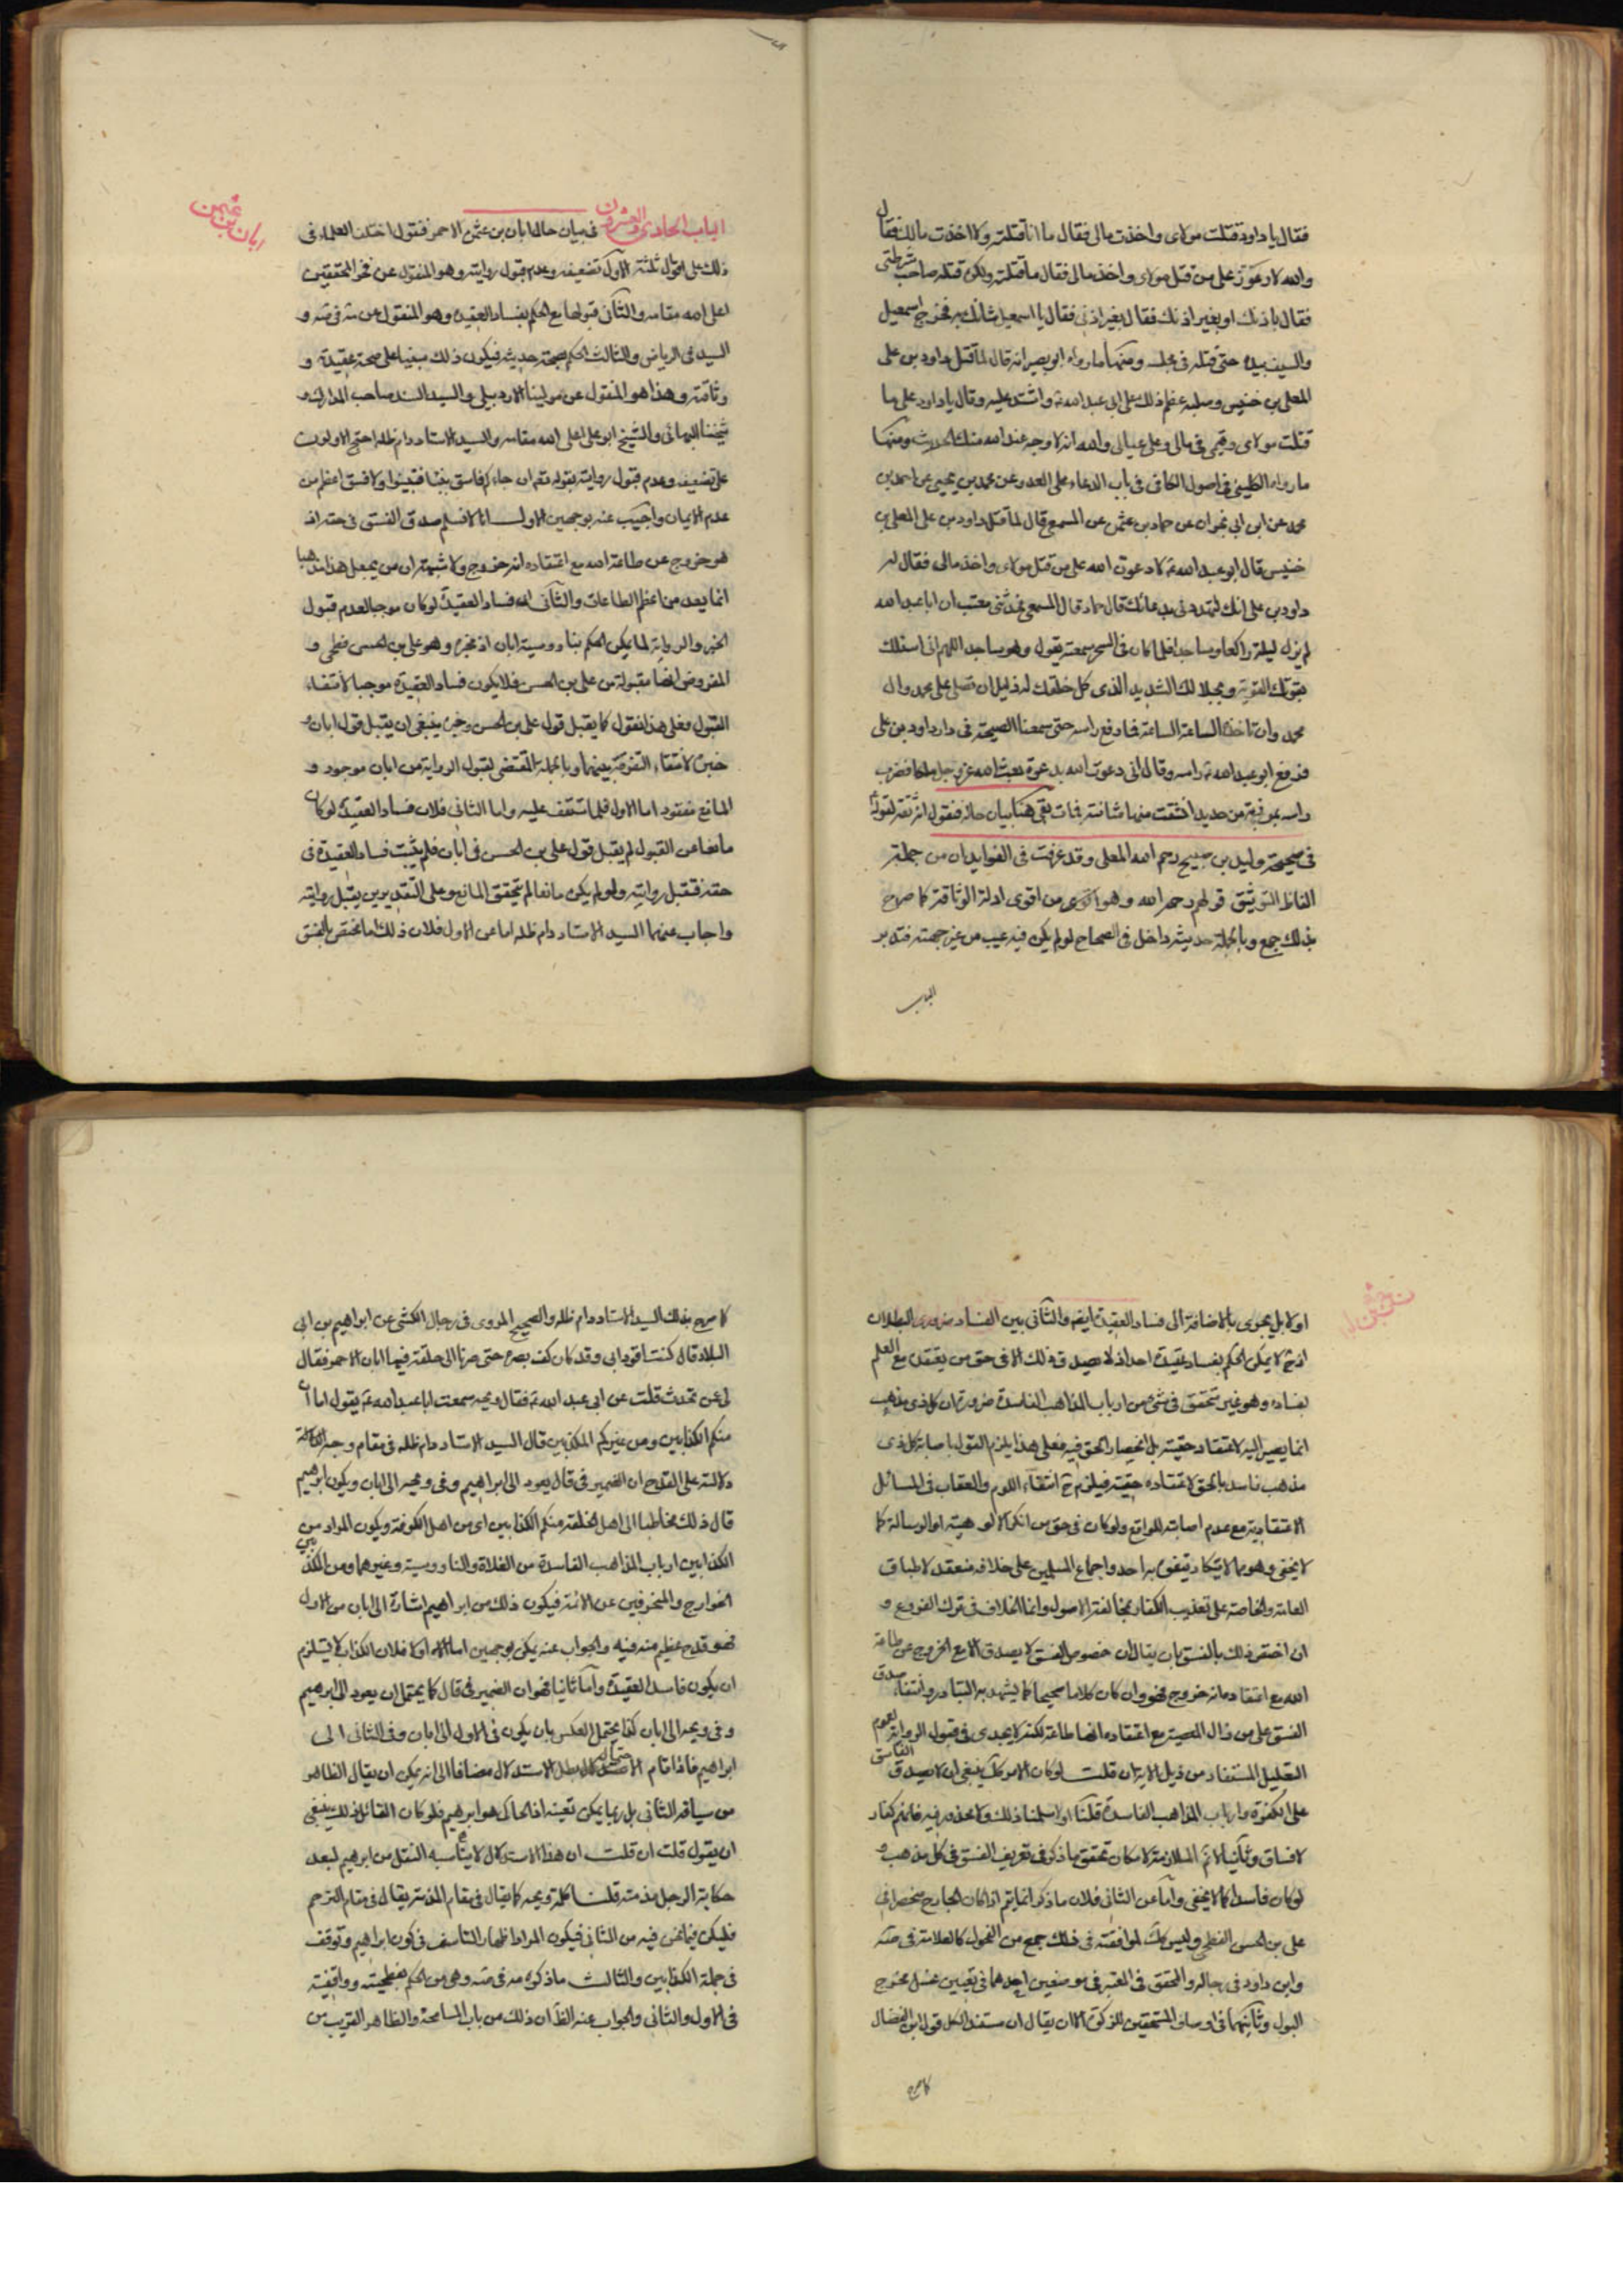 فقال يا داود قتلت مولاى واخذت مالى فقال ما انا قتلته ولا اخذت مالك فقال
والله لادعون على من قتل مولاى واخذ مالى فقال ما قتلته ولكن قتله صاحب شرطتى
فقال باذنك او بغير اذنك فقال بغير اذنى فقال يا اسمعيل شانك به فخرج اسمعيل
والسيف بيده حتى قتله فى مجلسه ومنها ما رواه ابو بصير انه قال لما قتل داود بن على
المعلى بن خنيس وصلبه عظم ذلك على ابى عبد الله ع واشتد عليه وقال يا داود على ما
قتلت مولاى وقيمى فى مالى وعلى عيالى والله انه لاوجه عند الله منك الحديث ومنها
ما رواه الكلينى فى اصول الكافى فى باب الدعاء على العدو عن محمد بن يحيى عن احمد بن
محمد عن ابن ابى نجران عن حماد بن عثمن عن المسمعى قال لما قتل داود بن على المعلى بن
خنيس قال ابو عبد الله ع لادعون الله على من قتل مولاى واخذ مالى فقال له
داود بن على انك لتهددنى بدعائك قال حماد قال المسمعى فحدثنى معتب ان ابا عبد الله
لم يزل ليلته راكعا وساجدا فلما كان فى السحر سمعته يقول وهو ساجد اللهم انى اسئلك
بقوتك القوية وبجلالك الشديد الذى كل خلقك له ذليل ان تصلى على محمد وال
محمد وان تاخذه الساعة الساعة فما رفع راسه حتى سمعنا الصيحة فى دار داود بن على
فرفع ابو عبد الله ع راسه وقال انى دعوت الله بدعوة بعث الله عز وجل ملكا فضرب
راسه بمرزبة من حديد انشقت منها مثانته فمات بقى هنا بيان حاله فنقول انه ثقة لقوله ع
فى صحيحة وليد بن صبيح رحم الله المعلى وقد عرفت فى الفوايد ان من جملة
الفاظ التوثيق قولهم رحمه الله وهو اقوى من اقوى ادلة الوثاقة كما صرح
بذلك جمع وبالجملة حديثه داخل فى الصحاح لو لم يكن فيه عيب من غير جهته فتدبر
الباب
الباب الحادى والعشرون فى بيان حال ابان بن عثمن الاحمر فنقول اختلف العلماء فى
ابان بن عثمن
ذلك على اقوال ثلثة الاول تضعيفه وعدم قبول روايته وهو المنقول عن فخر المحققين
اعلى الله مقامه والثانى قبولها مع الحكم بفساد العقيدة وهو المنقول عن
السيد فى الرياض والثالث الحكم بصحة حديثه فيكون ذلك مبنيا على صحة عقيدته و
وثاقته وهذا هو المنقول عن مولينا الاردبيلى والسيد السند صاحب المدارك و
شيخنا البهائى والشيخ ابو على اعلى الله مقامه والسيد الاستاد دام ظله احتج الاولون
على تضعيفه وعدم قبول روايته بقوله تعم ان جاءكم فاسق بنبأ فتبينوا ولا فسق اعظم من
عدم الايمان واجيب عنه بوجهين الاول انا لا نسلم صدق الفسق فى حقه اذ
هو خروج عن طاعة الله مع اعتقاده انه خروج ولا شبهة ان من يجعل هذا مذهبا
انما يعده من اعظم الطاعات والثانى ان فساد العقيدة لو كان موجبا لعدم قبول
الخبر والرواية لما يمكن الحكم بناووسية ابان اذ مخبره وهو على بن الحسن فطحى و
المفروض انها مقبولة من على بن الحسن فلا يكون فساد العقيدة موجبا لانتفاء
القبول وعلى هذا نقول كما يقبل قول على بن الحسن وخبره ينبغى ان يقبل قول ابان و
خبره لانتفاء التفرقة بينهما وبالجملة المقتضى لقبول الرواية من ابان موجود و
المانع مفقود اما الاول فلما ستقف عليه واما الثانى فلان فساد العقيدة لو كان
مانعا عن القبول لم يقبل قول على بن الحسن فى ابان فلم يثبت فساد العقيدة فى
حقه فتقبل روايته ولو لم يكن مانعا لم يتحقق المانع وعلى التقديرين يقبل روايته
واجاب عنهما السيد الاستاد دام ظله اما عن الاول فلان ذلك اما يختص بالفسق
اولا بل يجرى بالاضافة الى فساد العقيدة ايضا والثانى بين الفساد ضرورى البطلان
اذ ح لا يمكن الحكم بفساد عقيدة احد اذ لا يصدق ذلك الا فى حق من يعتقد مع العلم
بفساده وهو غير متحقق فى شىء من ارباب المذاهب الفاسدة ضرورة ان كل ذى مذهب
انما يصير اليه لاعتقاد حقيته بل انحصار الحق فيه فعلى هذا يلزم القول باصابة كل ذى
مذهب فاسد بالحق لاعتقاده حقيته فيلزم ح انتفاء اللوم والعقاب فى المسائل
الاعتقادية مع عدم اصابته للواقع ولو كان فى حق من انكر الالوهية او الرسالة كما
لا يخفى وهو مما لا يكاد يتفوه به احد واجماع المسلمين على خلافه منعقد لاطباق
العامة والخاصة على تعذيب الكفار بمخالفتهم الاصول وانما الخلاف فى ترك الفروع و
ان اختص ذلك بالفسق بان يقال ان خصوص الفسق لا يصدق الا مع الخروج عن طاعة
الله مع اعتقاده انه خروج فهو وان كان كلاما صحيحا كما يشهد به التبادر وانتفاء صدق
الفسق على من زال المعصية مع اعتقاده انها طاعة لكنه لا يجدى فى قبول الرواية لعموم
التعليل المستفاد من ذيل الاية ان قلت لو كان الامر كك ينبغى ان لا يصدق الفاسق
على الكفرة وارباب المذاهب الفاسدة قلنا اولا سلمنا ذلك ولا محذور فيه فانهم كفار
لا فساق وثانيا لا ثم الملازمة لامكان تحقق ما ذكر فى تعريف الفسق فى كل مذهب و
لو كان فاسدا كما لا يخفى واما عن الثانى فلان ما ذكر انما يتم اذا كان الجارح منحصرا فى
على بن الحسن الفطحى وليس كك لموافقته فى ذلك جمع من الفحول كالعلامة فى
وابن داود فى رجاله والمحقق فى المعتبر فى موضعين احدهما فى تعيين غسل مخرج
البول وثانيهما فى اوصاف المستحقين للزكوة الا ان يقال ان مستند الكل قول ابن الفضال
كما صرح
كما صرح بذلك السيد الاستاد دام ظله والصحيح المروى فى رجال الكشى عن ابراهيم بن ابى
البلاد قال كنت اقود ابى وقد كان كف بصره حتى صرنا الى حلقة فيها ابان الاحمر فقال
لى عن تحدث قلت عن ابى عبد الله ع فقال ويحه سمعت ابا عبد الله ع يقول اما ان
منكم الكذابين ومن غيركم المكذبين قال السيد الاستاد دام ظله فى مقام وجه
دلالته على القدح ان الضمير فى قال يعود الى ابراهيم وفى ويحه الى ابان ويكون ابرهيم
قال ذلك مخاطبا الى اهل الحلقة منكم الكذابين اى من اهل الكوفة ويكون المراد من
الكذابين ارباب المذاهب الفاسدة من الغلاة والناووسية وغيرهما ومن المكذبين
الخوارج والمنحرفين عن الائمة فيكون ذلك من ابراهيم اشارة الى ابان من الاول
فهو قدح عظيم منه فيه والجواب عنه يمكن بوجهين اما اولا فلان الكذاب لا يستلزم
ان يكون فاسد العقيدة واما ثانيا فهو ان الضمير فى قال كما يحتمل ان يعود الى ابرهيم
وفى ويحه الى ابان كذا يحتمل العكس بان يكون فى الاول الى ابان وفى الثانى الى
ابراهيم فاذا قام الاحتمال بطل الاستدلال مضافا الى انه يمكن ان يقال الظاهر
من سياقه الثانى بل ربما يمكن تعينه اذ الحاكى هو ابرهيم فلو كان القائل ذلك ينبغى
ان يقول قلت ان قلت ان هذا الاستدلال لا يناسبه النقل من ابرهيم لبعد
حكاية الرجل مذمته قلنا كلمة ويحه كما يقال فى مقام المذمة يقال فى مقام الترحم
فليكن فيما نحن فيه من الثانى فيكون المراد اظهار التاسف فى كون ابراهيم وتوقف
فى جملة الكذابين والثالث ما ذكره فى وهى من الحكم بفطحيته وواقفيته
فى الاول والثانى والجواب عنه الظ ان ذلك من باب المسامحة والظاهر القريب من